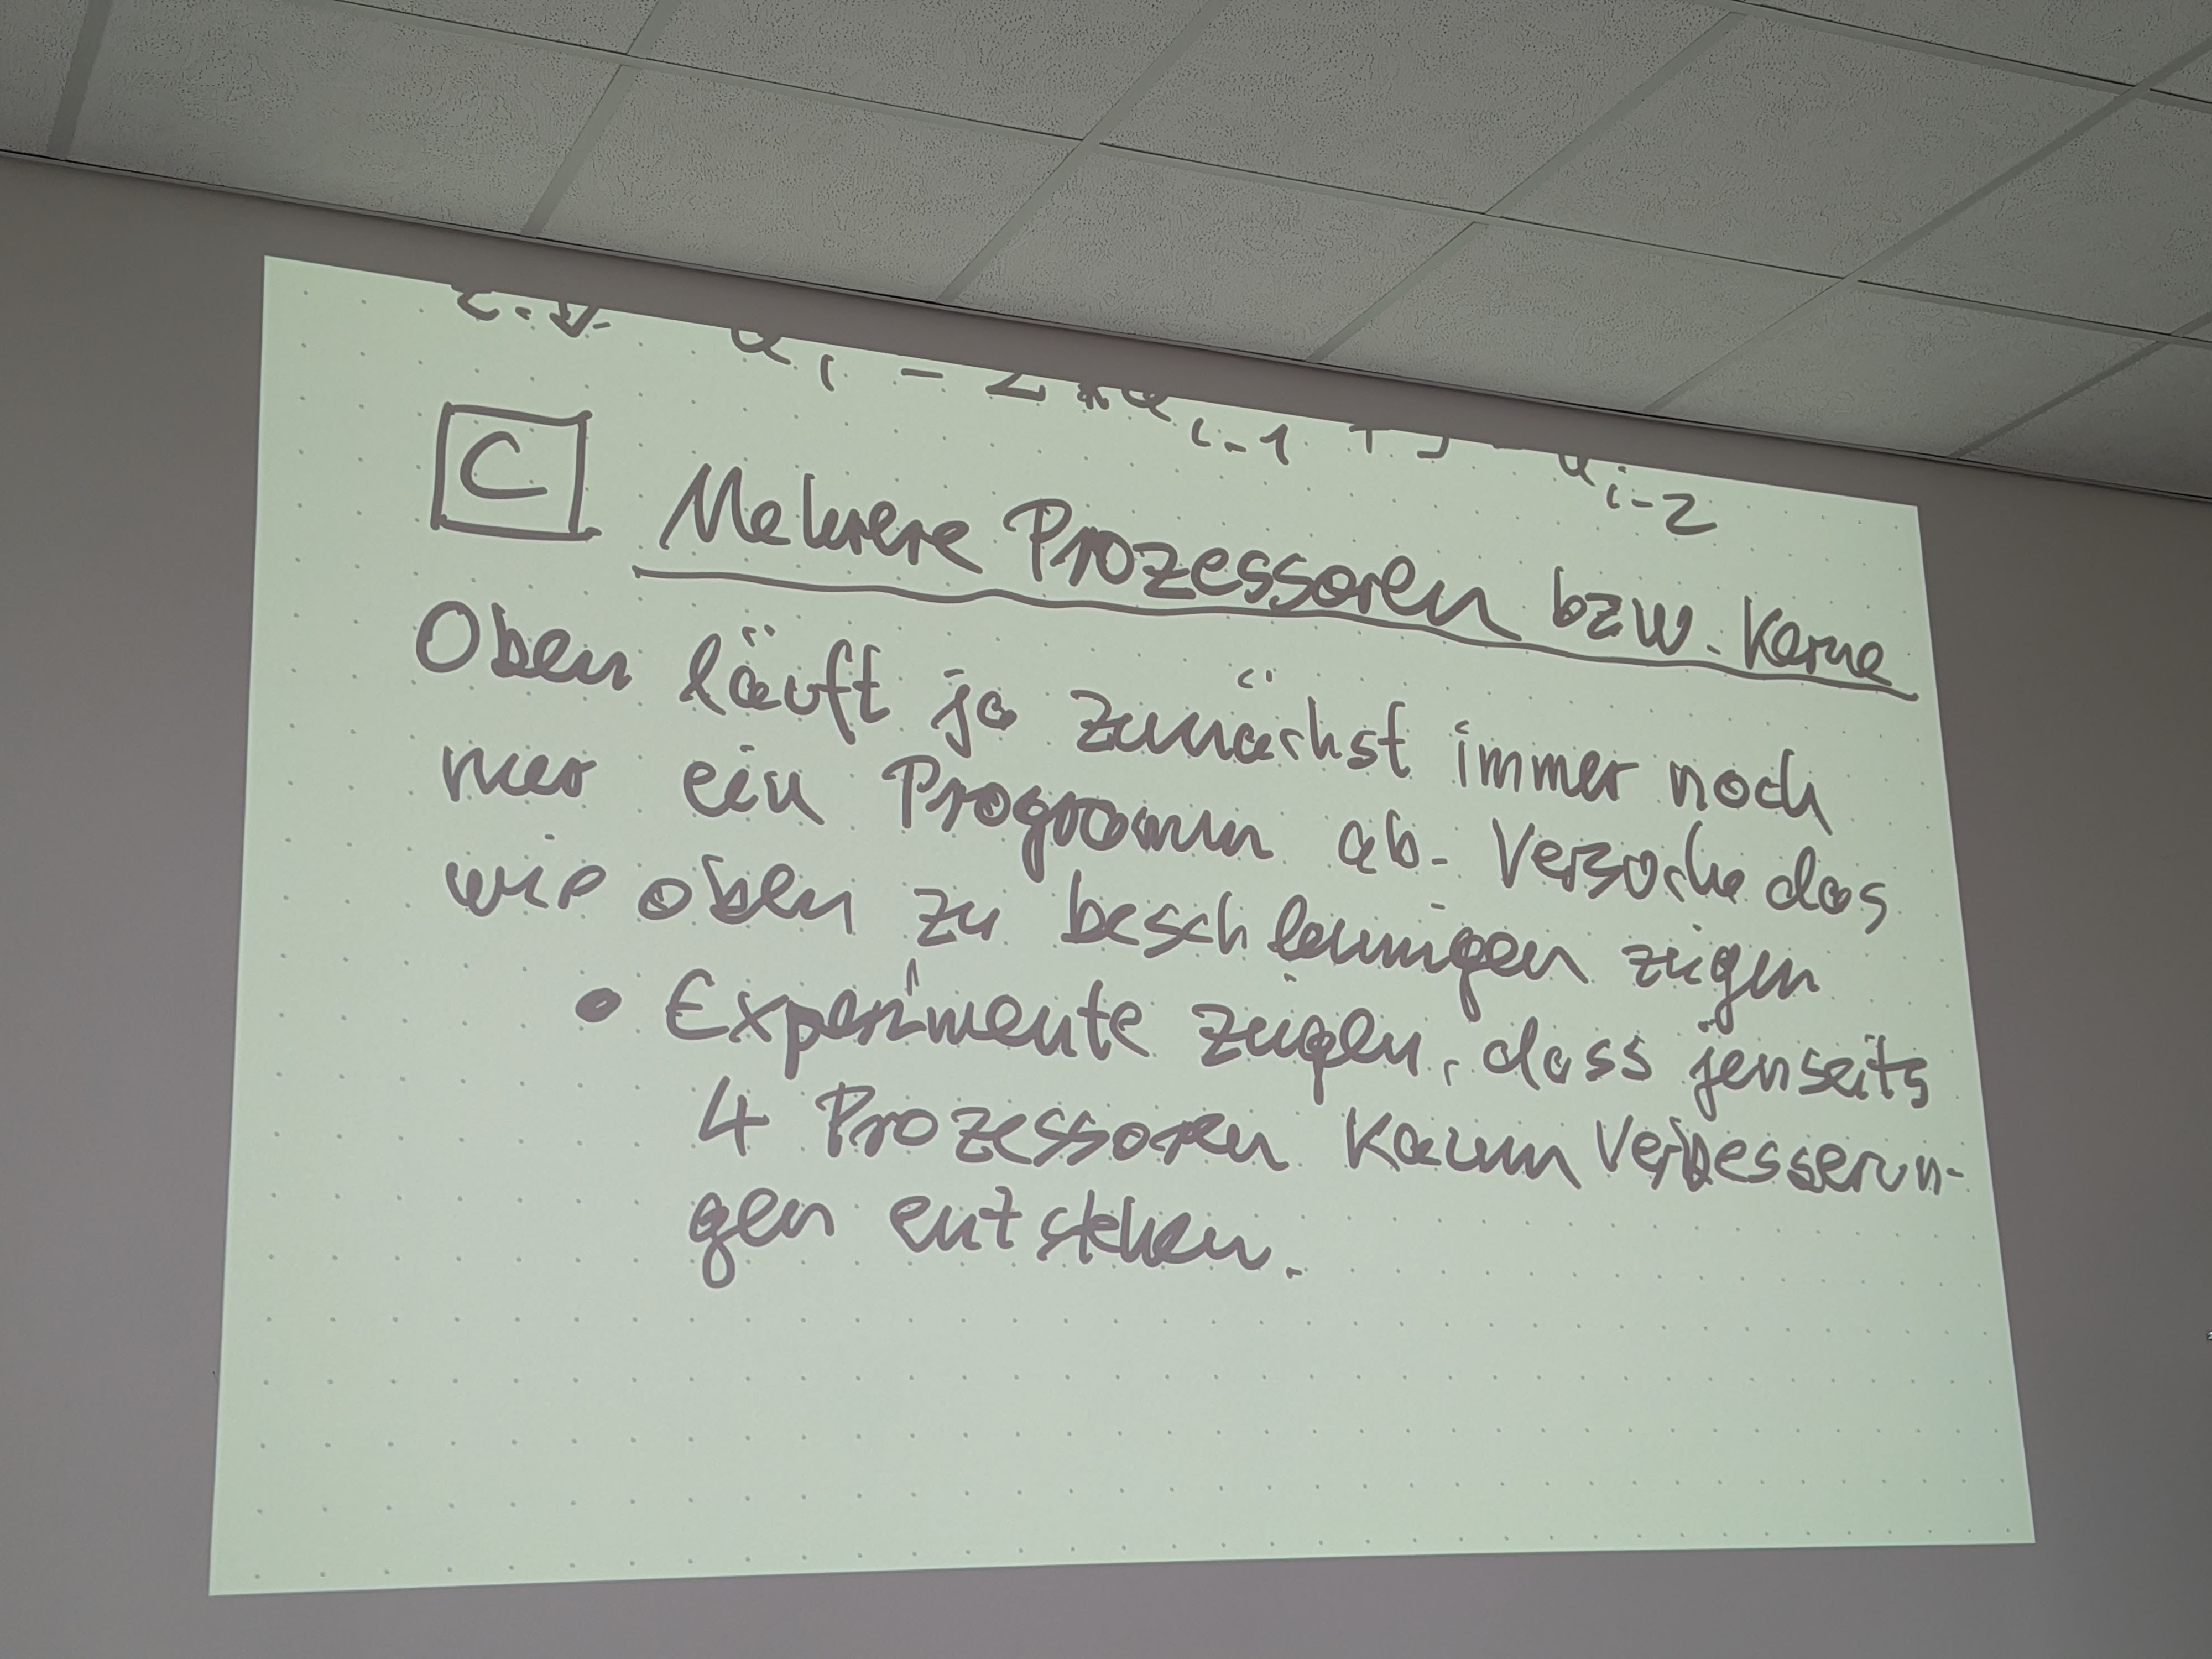 a i - 2 * a i-1 + a i-2
C Mehrere Prozessoren bzw. Kerne
Oben läuft ja zunächst immer noch
nur ein Programm ab. Versuche das
wie oben zu beschleunigen zeigen
• Experimente zeigen, dass jenseits
4 Prozessoren kaum Verbesserun-
gen entstehen.